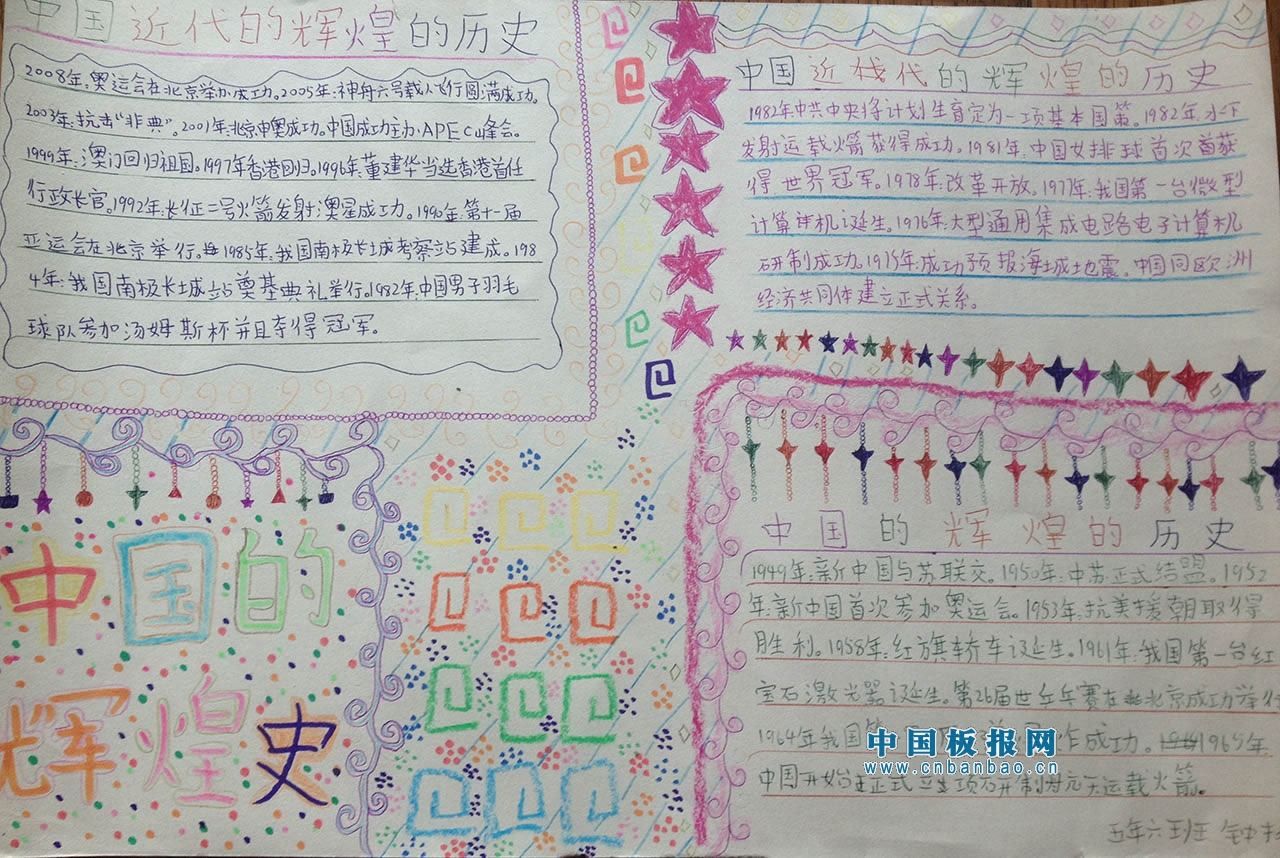 中国近代的辉煌的历史
2008年:奥运会在北京举办成功。2005年:神舟六号载人飞行圆满成功。
2003年:抗击“非典”。2001年:北京申奥成功。中国成功主办APEC峰会。
1999年:澳门回归祖国。1997年香港回归。1996年:董建华当选香港首任
行政长官。1992年:长征二号火箭发射澳星成功。1990年:第十一届
亚运会在北京举行。1985年:我国南极长城考察站建成。198
4年:我国南极长城站奠基典礼举行。1982年:中国男子羽毛
球队参加汤姆斯杯并且夺得冠军。
中国近代的辉煌的历史
1982年中共中央将计划生育定为一项基本国策。1982年:水下
发射运载火箭获得成功。1981年:中国女排球首次首获
得世界冠军。1978年:改革开放。1977年:我国第一台微型
计算机诞生。1976年:大型通用集成电路电子计算机
研制成功。1975年成功预报海城地震。中国同欧洲
经济共同体建立正式关系。
中国的
辉煌史
中国的辉煌的历史
1949年:新中国与苏联交。1950年:中苏正式结盟。1952
年:新中国首次参加奥运会。1953年:抗美援朝取得
胜利。1958年:红旗轿车诞生。1961年:我国第一台红
宝石激光器诞生。第26届世乒乓赛在北京成功举行
1964年我国第 作成功。1965年
中国开始正式立项研制 运载火箭。
中国板报网
www.cnbanbao.cn
五年六班 钟